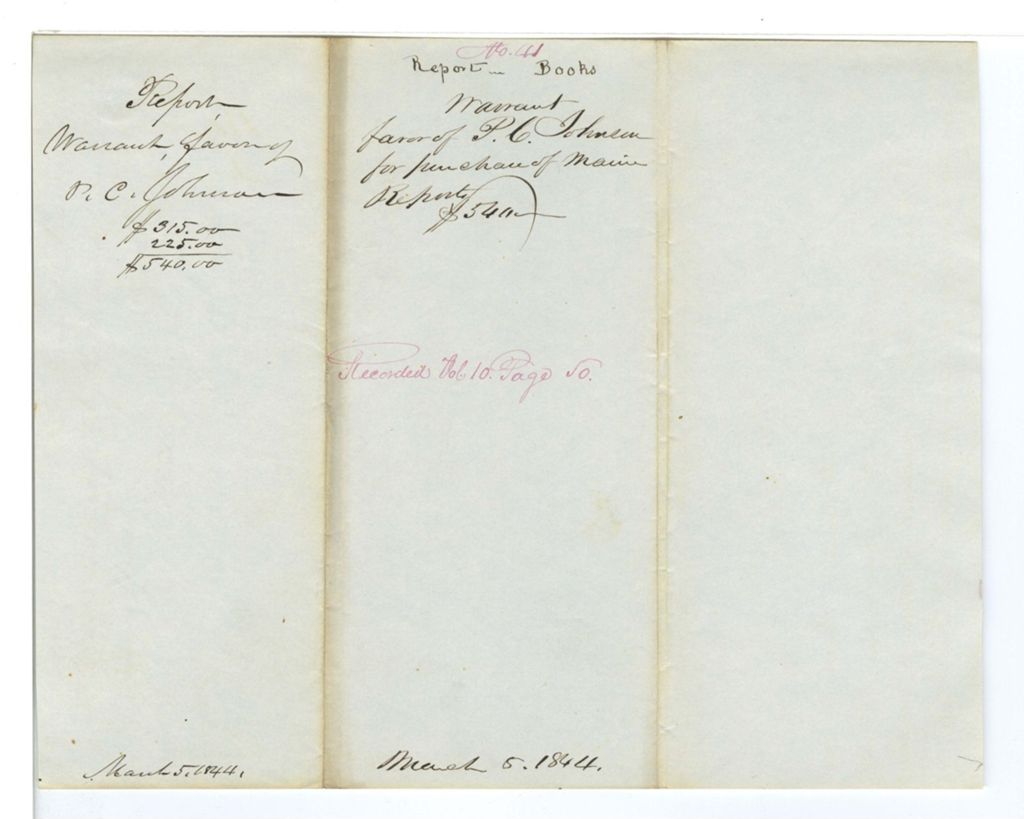 Report
Warrant favor of
P. C. Johnson
$315.00
225.00
$540.00
March 5. 1844.
No. 41
Report in Books
Warrant
favor of P. C. Johnson
for purchase of Maine
Reports
$540
Recorded Vol. 10. Page 50.
March 5. 1844.